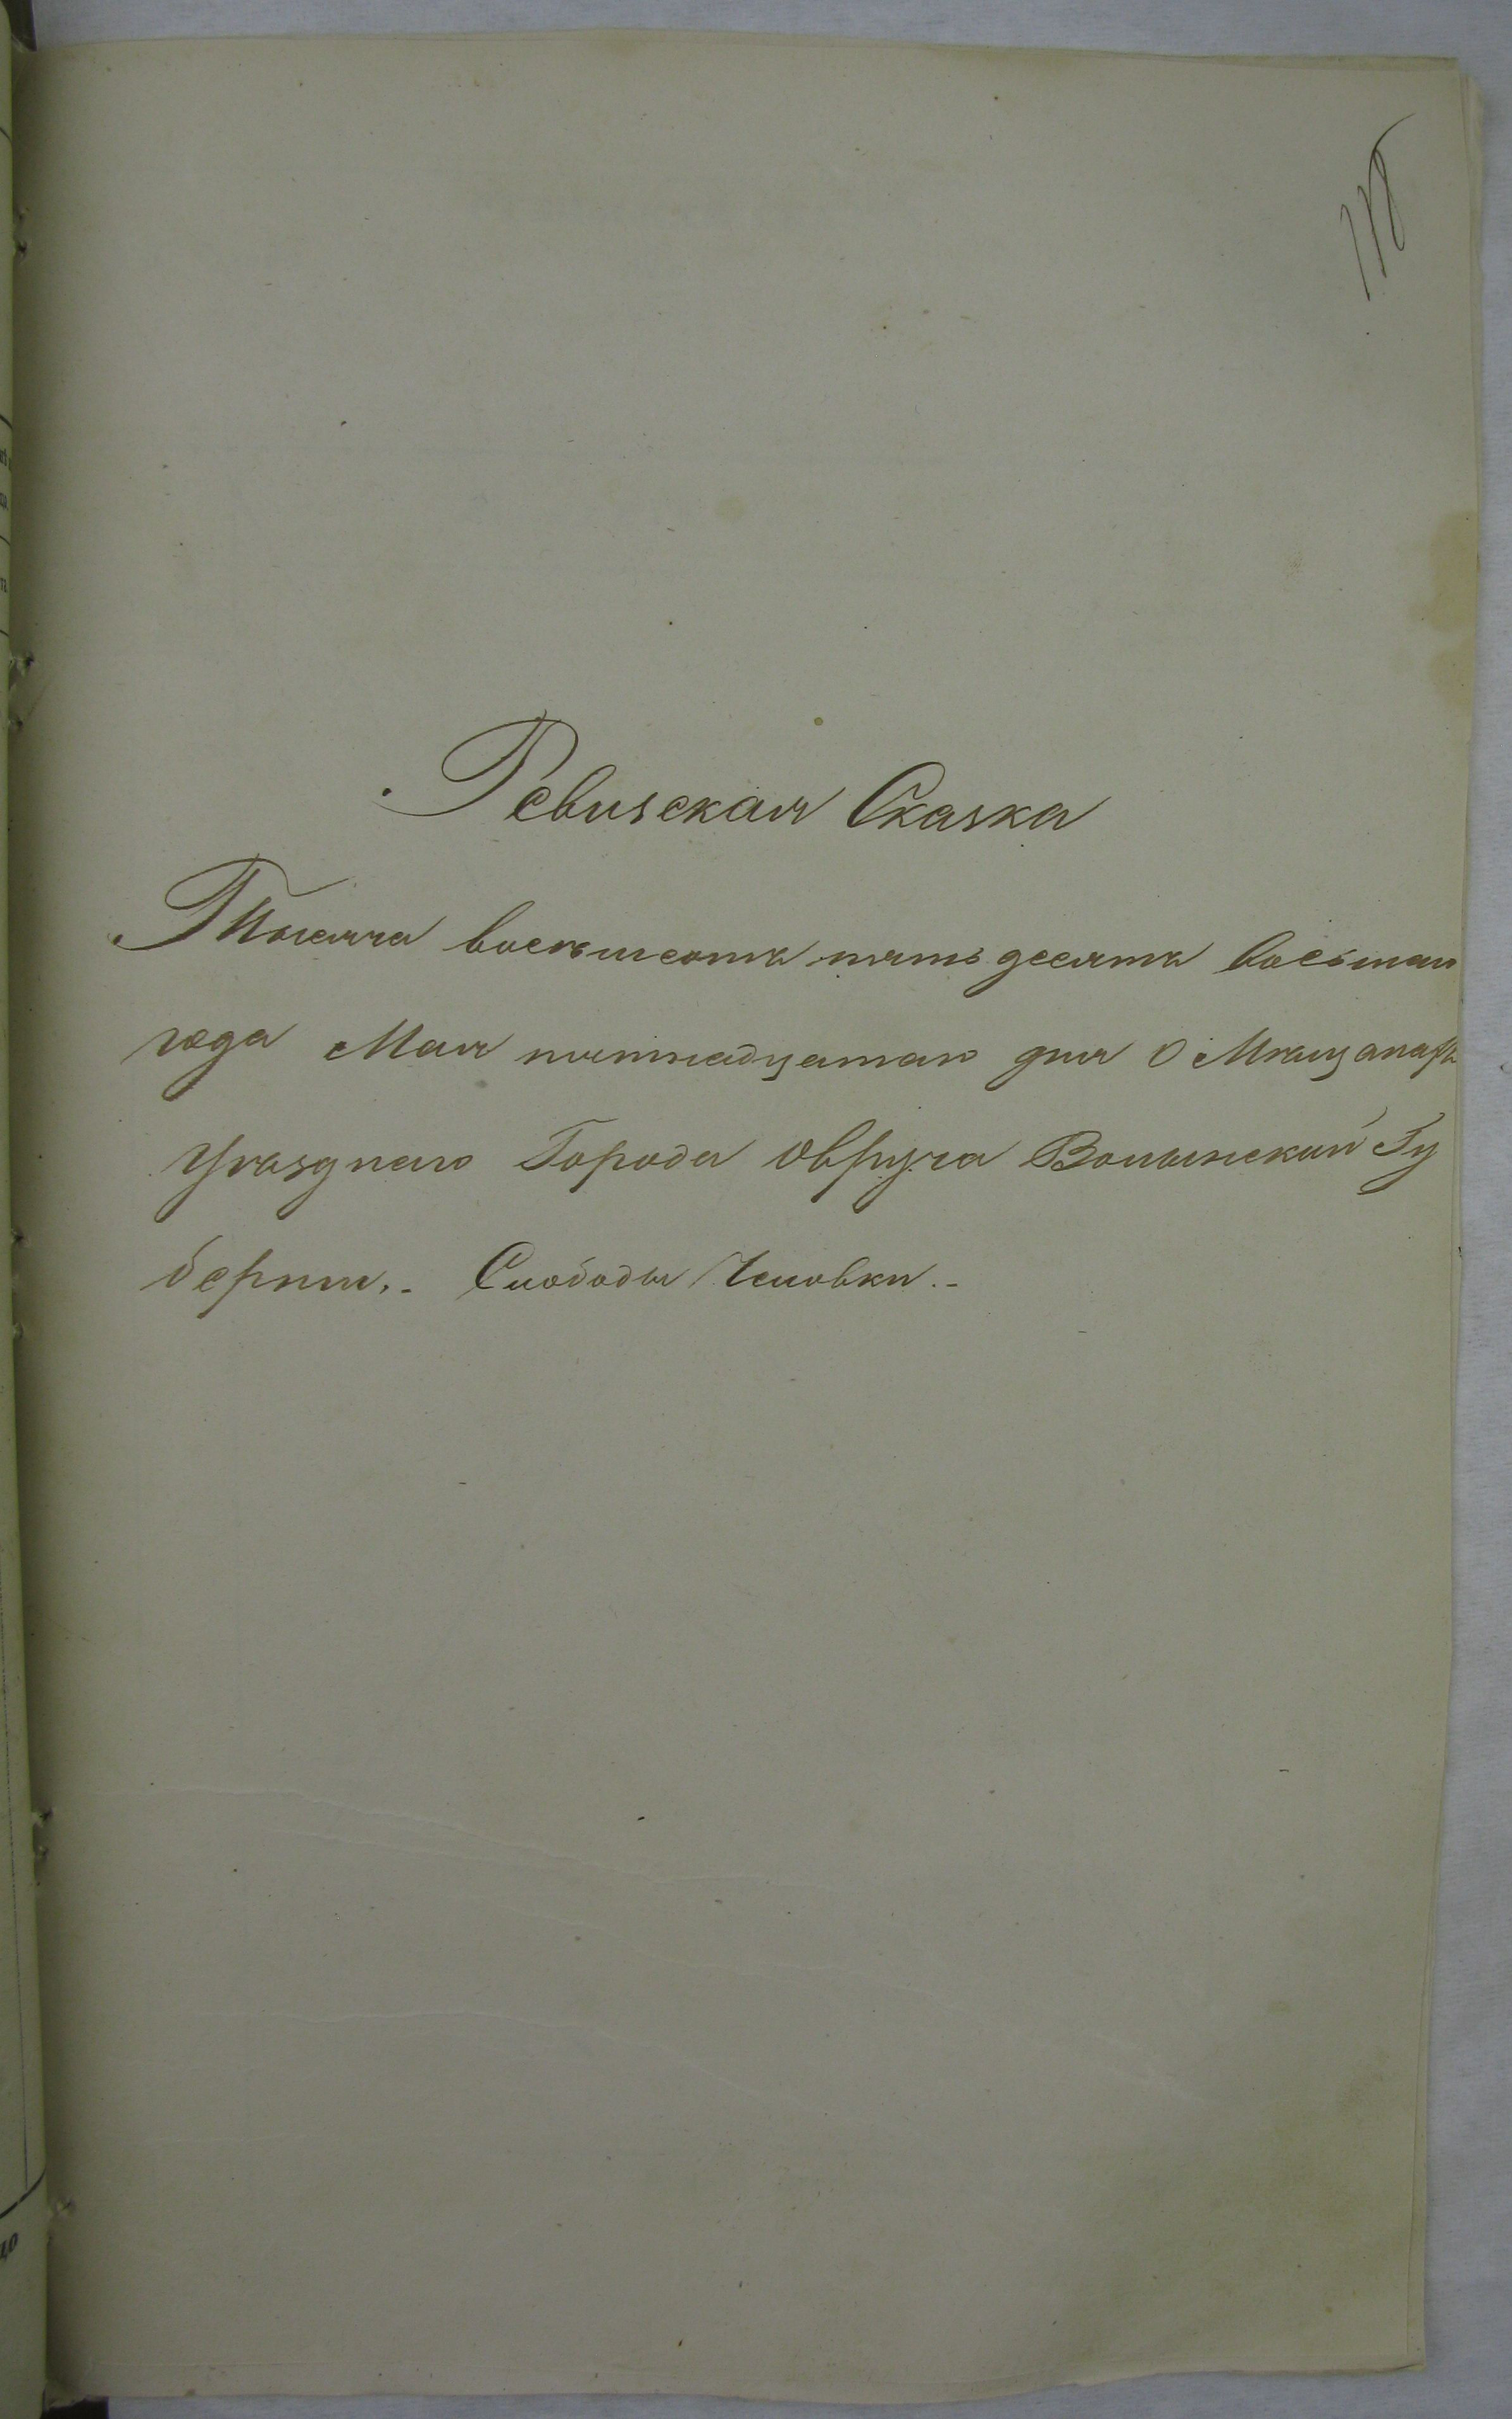 Ревизская Сказка
Тысяча восемьсотъ пятьдесятъ восьмаго
года Мая пятнадцатаго дня О Мѣщанахъ
Уѣзднаго Города Овруча Волынской Гу
берніи.- Слободы Чолновки.-